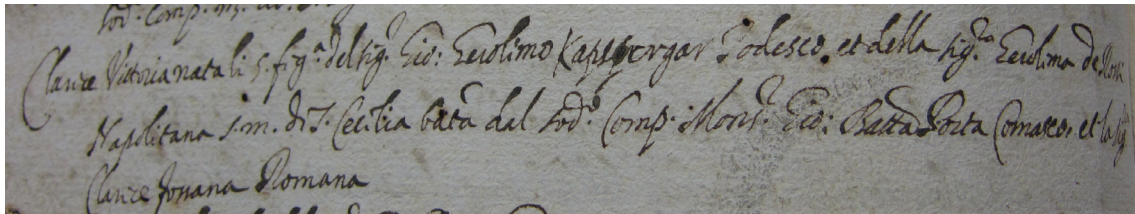 sod.º Comp.
Clarice Vittoria nata li 5. fig.ª del sig.r Gio: Gerolimo Kapsbergar Todesco, et della sig.ra Gerolima de Rossi
Napolitana s.m. di S. Cecilia bat.ta dal sod.º Comp. Mons.r Gio: Batta Porta Comasco, et la sig.ra
Clarice Romana